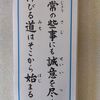 常の些事にも誠意を尽
びる道はそこから始まる